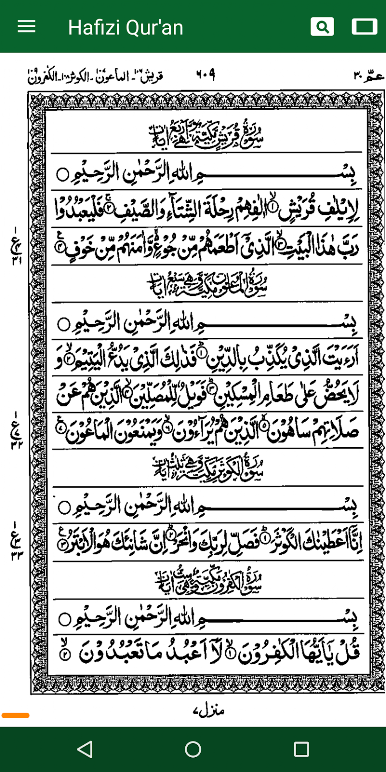 Hafizi Qur'an
عمّ ٣٠ ٦٠٩ قريش ١٠٦۔الماعون ١٠٧۔الكوثر ١٠٨۔الكفرون ١٠٩
سُوْرَةُ قُرَيْشٍ مَّكِّيَّةٌ وَّهِيَ اَرْبَعُ اٰيَاتٍ
بِسْمِ اللّٰهِ الرَّحْمٰنِ الرَّحِيْمِ ○
لِاِيْلٰفِ قُرَيْشٍ ۙ﴿١﴾ اٖلٰفِهِمْ رِحْلَةَ الشِّتَآءِ وَالصَّيْفِ ۚ﴿٢﴾ فَلْيَعْبُدُوْا
رَبَّ هٰذَا الْبَيْتِ ۙ﴿٣﴾ الَّذِيْٓ اَطْعَمَهُمْ مِّنْ جُوْعٍ ۙ وَّاٰمَنَهُمْ مِّنْ خَوْفٍ ﴿٤﴾
ع ٣١
سُوْرَةُ الْمَاعُوْنِ مَكِّيَّةٌ وَّهِيَ سَبْعُ اٰيَاتٍ
بِسْمِ اللّٰهِ الرَّحْمٰنِ الرَّحِيْمِ ○
اَرَءَيْتَ الَّذِيْ يُكَذِّبُ بِالدِّيْنِ ﴿١﴾ فَذٰلِكَ الَّذِيْ يَدُعُّ الْيَتِيْمَ ۙ﴿٢﴾ وَ
لَا يَحُضُّ عَلٰى طَعَامِ الْمِسْكِيْنِ ﴿٣﴾ فَوَيْلٌ لِّلْمُصَلِّيْنَ ۙ﴿٤﴾ الَّذِيْنَ هُمْ عَنْ
صَلَاتِهِمْ سَاهُوْنَ ۙ﴿٥﴾ الَّذِيْنَ هُمْ يُرَآءُوْنَ ۙ﴿٦﴾ وَيَمْنَعُوْنَ الْمَاعُوْنَ ﴿٧﴾
ع ٣٢
سُوْرَةُ الْكَوْثَرِ مَكِّيَّةٌ وَّهِيَ ثَلٰثُ اٰيَاتٍ
بِسْمِ اللّٰهِ الرَّحْمٰنِ الرَّحِيْمِ ○
اِنَّآ اَعْطَيْنٰكَ الْكَوْثَرَ ﴿١﴾ فَصَلِّ لِرَبِّكَ وَانْحَرْ ﴿٢﴾ اِنَّ شَانِئَكَ هُوَ الْاَبْتَرُ ﴿٣﴾
ع ٣٣
سُوْرَةُ الْكٰفِرُوْنَ مَكِّيَّةٌ وَّهِيَ سِتُّ اٰيَاتٍ
بِسْمِ اللّٰهِ الرَّحْمٰنِ الرَّحِيْمِ ○
قُلْ يٰٓاَيُّهَا الْكٰفِرُوْنَ ۙ﴿١﴾ لَآ اَعْبُدُ مَا تَعْبُدُوْنَ ۙ﴿٢﴾
منزل ٧